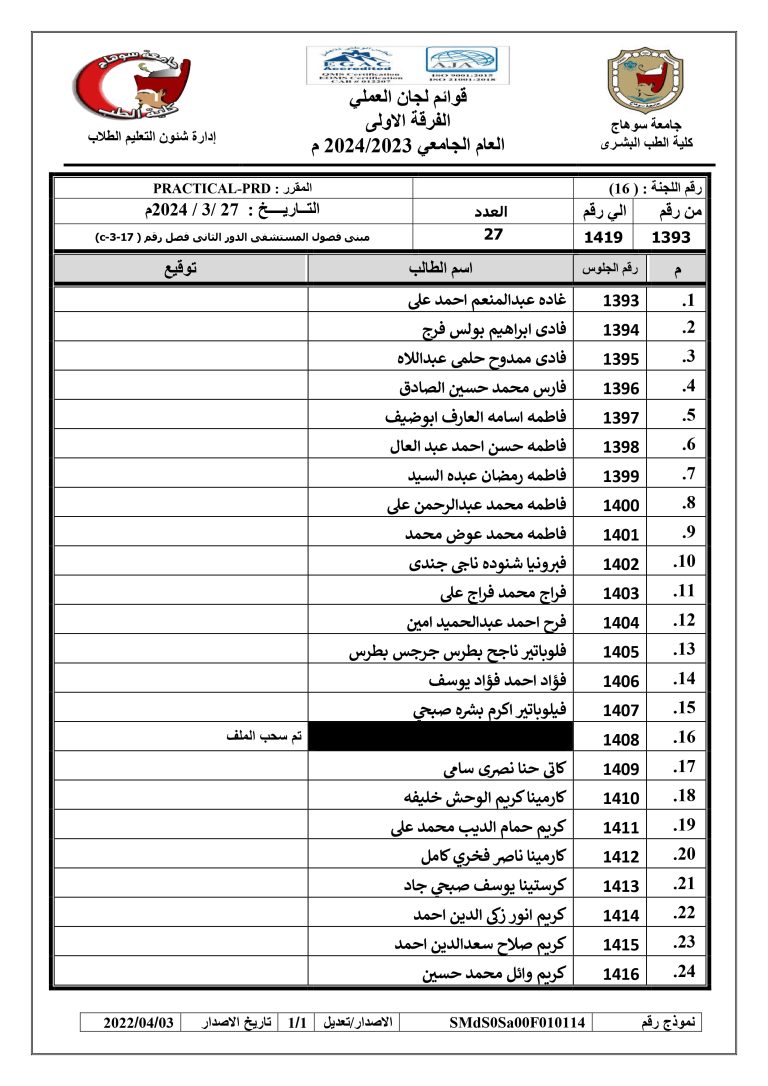 جامعة سوهاج
كلية الطب
إدارة شئون التعليم الطلاب
EGAC
Accredited
QMS Certification
EOHMS Certification
CAB # 012207
AJA
ISO 9001:2015
ISO 21001:2018
جامعة سوهاج
كلية الطب البشرى
قوائم لجان العملي
الفرقة الاولى
العام الجامعي 2024/2023 م
رقم اللجنة : ( 16) المقرر : PRACTICAL-PRD
من رقم الي رقم العدد التـاريــخ : 27 /3 / 2024م
1393 1419 27 مبنى فصول المستشفى الدور الثانى فصل رقم ( c-3-17)
م رقم الجلوس اسم الطالب توقيع
1. 1393 غاده عبدالمنعم احمد على
2. 1394 فادى ابراهيم بولس فرج
3. 1395 فادى ممدوح حلمى عبداللاه
4. 1396 فارس محمد حسين الصادق
5. 1397 فاطمه اسامه العارف ابوضيف
6. 1398 فاطمه حسن احمد عبد العال
7. 1399 فاطمه رمضان عبده السيد
8. 1400 فاطمه محمد عبدالرحمن على
9. 1401 فاطمه محمد عوض محمد
10. 1402 فبرونيا شنوده ناجى جندى
11. 1403 فراج محمد فراج على
12. 1404 فرح احمد عبدالحميد امين
13. 1405 فلوباتير ناجح بطرس جرجس بطرس
14. 1406 فؤاد احمد فؤاد يوسف
15. 1407 فيلوباتير اكرم بشره صبحي
16. 1408 تم سحب الملف
17. 1409 كاتى حنا نصرى سامى
18. 1410 كارمينا كريم الوحش خليفه
19. 1411 كريم حمام الديب محمد على
20. 1412 كارمينا ناصر فخري كامل
21. 1413 كرستينا يوسف صبحي جاد
22. 1414 كريم انور زكى الدين احمد
23. 1415 كريم صلاح سعدالدين احمد
24. 1416 كريم وائل محمد حسين
نموذج رقم SMdS0Sa00F010114 الاصدار/تعديل 1/1 تاريخ الاصدار 2022/04/03